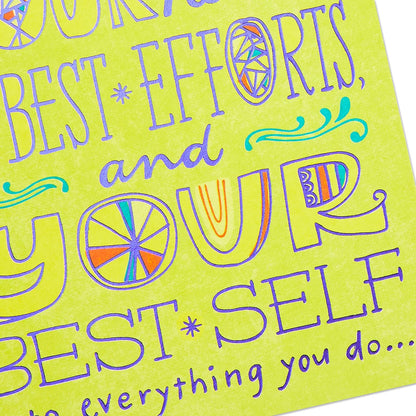 BEST * EFFORTS,
and
YOUR
BEST * SELF
to everything you do...